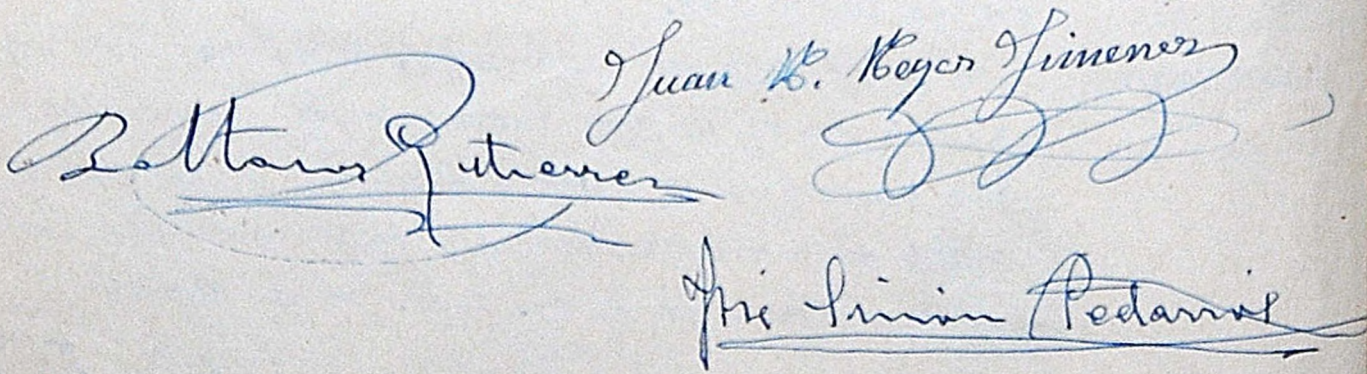 Juan R. Reyes Jimenez
Baltasar Gutierrez
José Simón